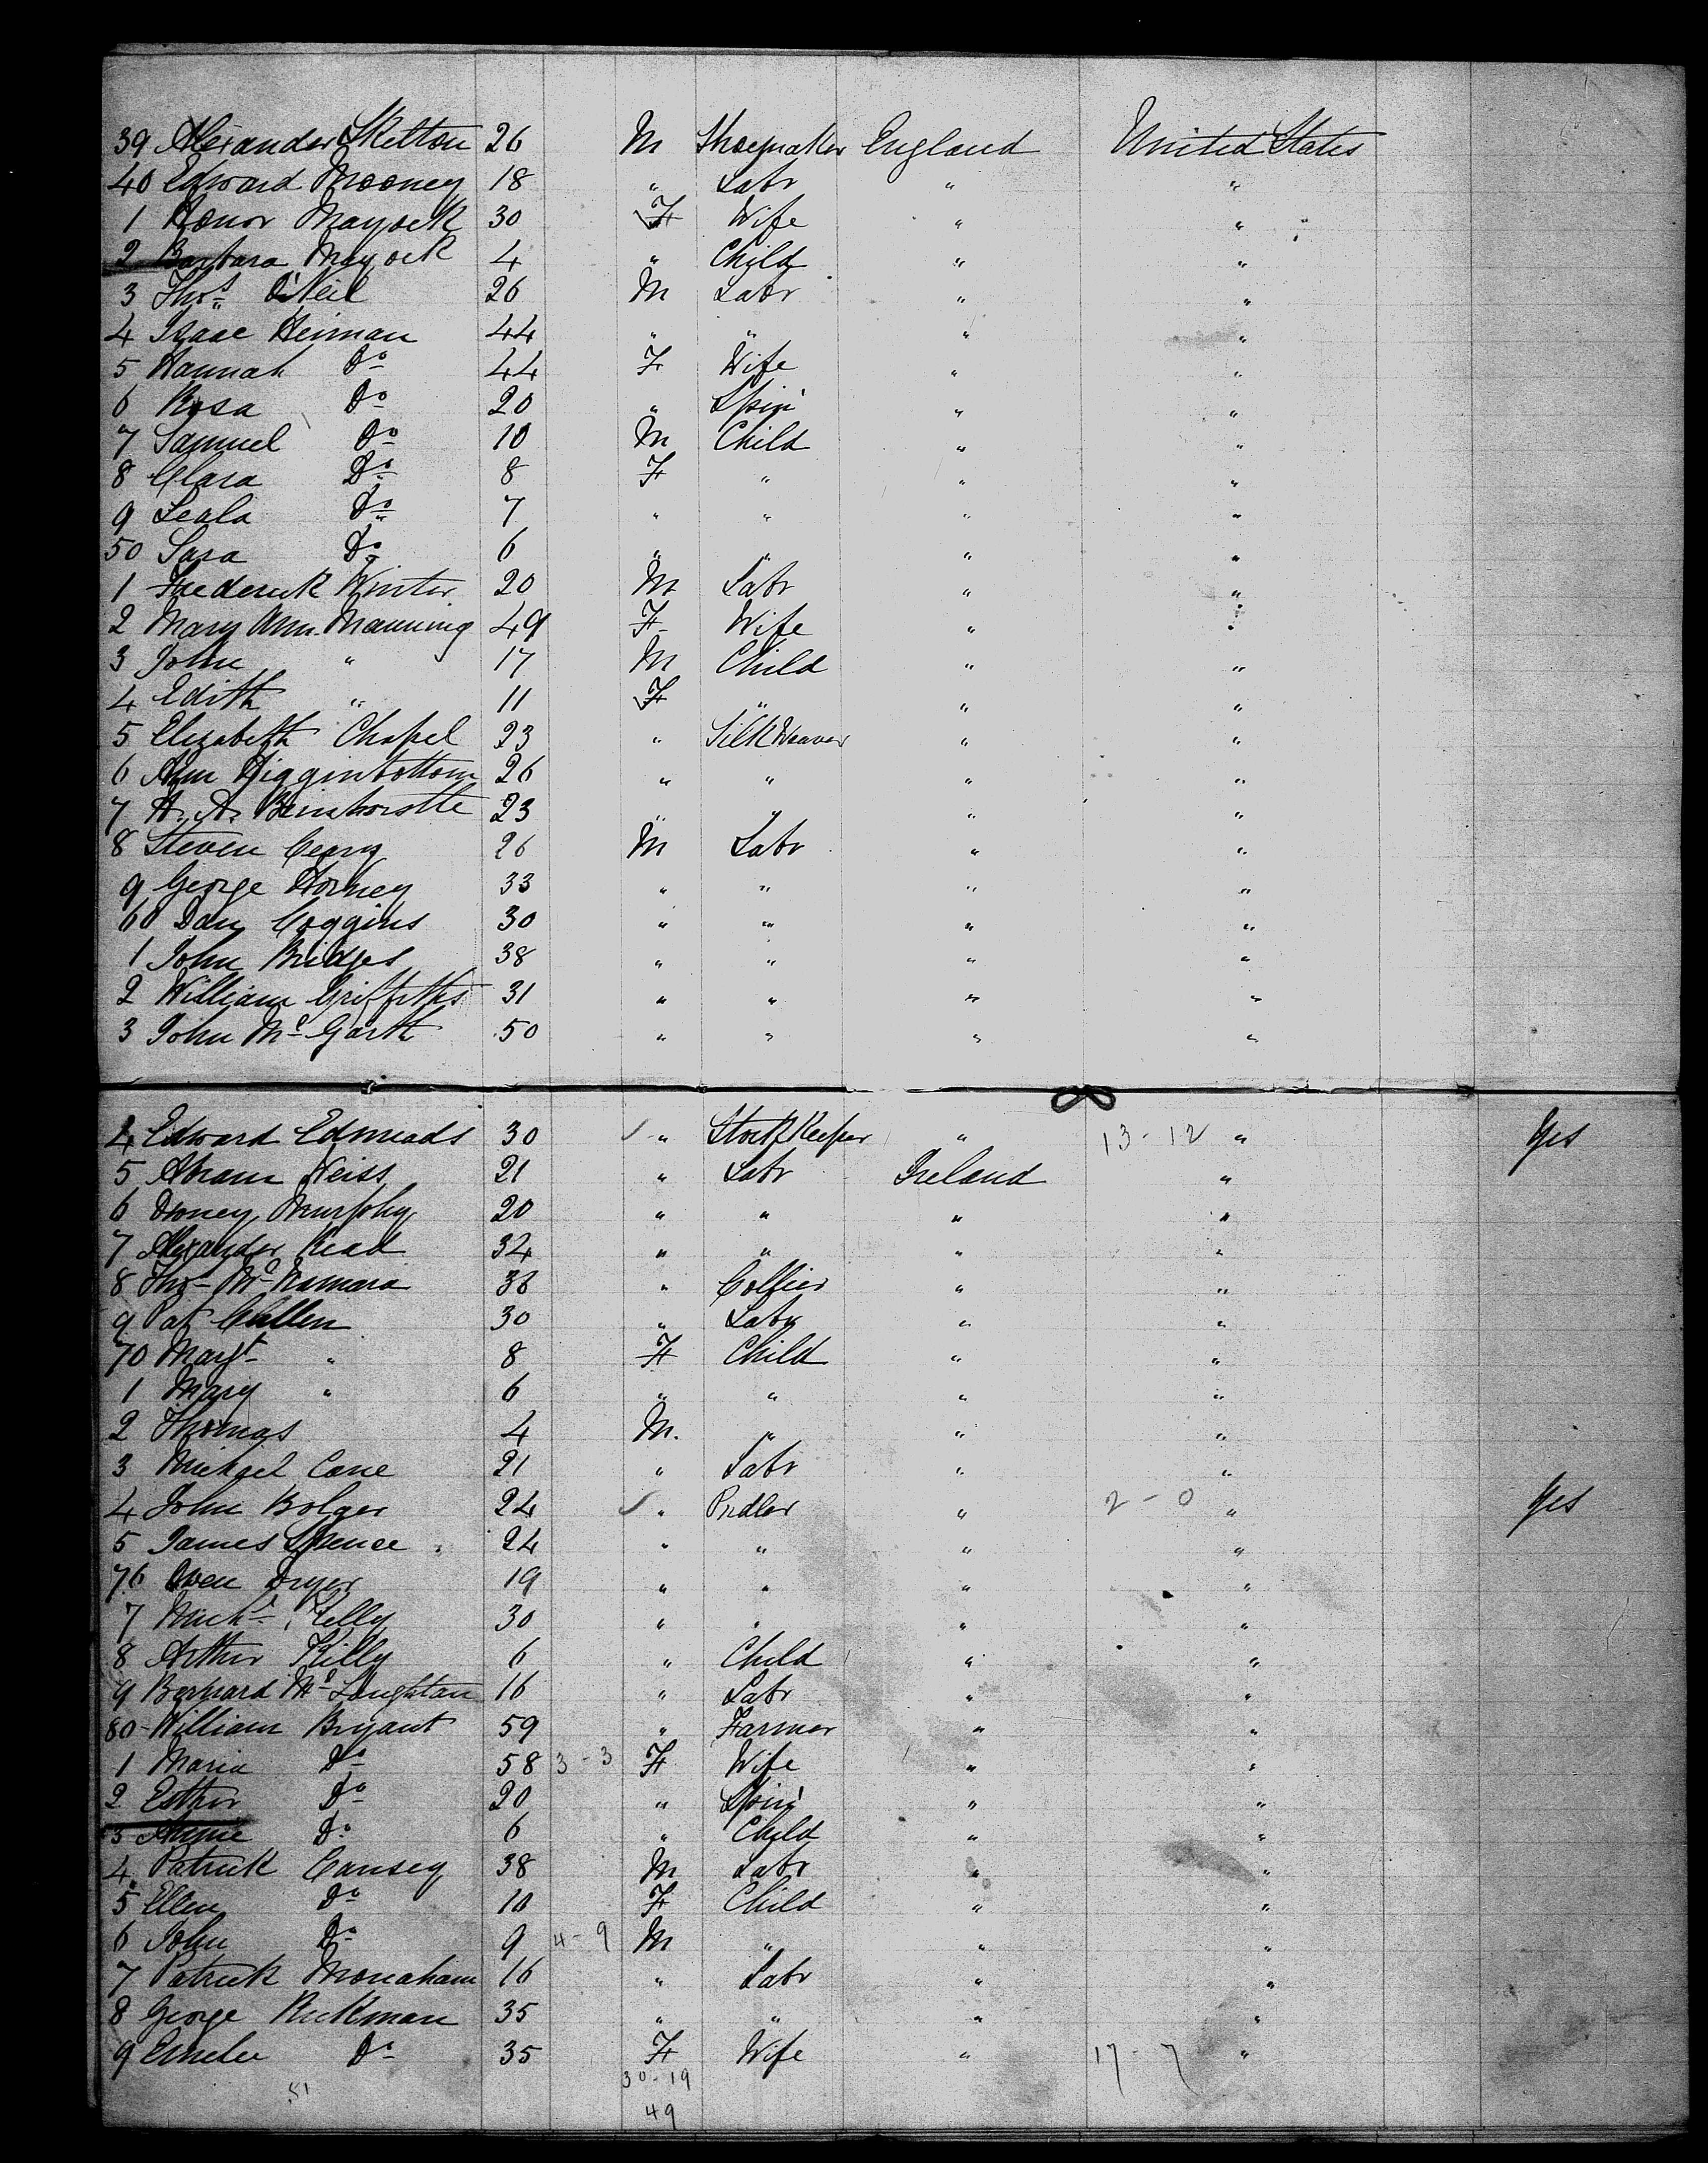 39 Alexander Skelton 26 M Shoemaker England United States
40 Edward Mooney 18 " Labr " "
1 Honor Mayock 30 F Wife " "
2 Barbara Mayock 4 " Child " "
3 Thos O'Neil 26 M Labr " "
4 Isaac Heiman 44 " " " "
5 Hannah Do 44 F Wife " "
6 Rosa Do 20 " Spinr " "
7 Samuel Do 10 M Child " "
8 Clara Do 8 F " " "
9 Leala Do 7 " " " "
50 Sara Do 6 " " " "
1 Frederick Winter 20 M Labr " "
2 Mary Ann Manning 49 F Wife " "
3 John " 17 M Child " "
4 Edith " 11 F " " "
5 Elizabeth Chapel 23 " Silk Weaver " "
6 Ann Higginbottom 26 " " " "
7 A. A. 23 " " " "
8 Steven 26 M Labr " "
9 George 33 " " " "
60 Dan Coggins 30 " " " "
1 John Bridges 38 " " " "
2 William Griffiths 31 " " " "
3 John Mc Garth 50 " " " "
4 Edward Edmuads 30 " Stock Keeper " 13-12 " Yes
5 Abram Weiss 21 " Labr Ireland "
6 Murphy 20 " " " "
7 Alexander Read 32 " " " "
8 Thos Mc Namara 38 " Collier " "
9 Pat Cullen 30 " Labr " "
70 Margt " 8 F Child " "
1 Mary " 6 " " " "
2 Thomas 4 M. " " "
3 Michael Cane 21 " Labr " "
4 John Bolger 24 " Pedler " 2-0 " Yes
5 James Spence 24 " " " "
76 Owen Dryer 19 " " " "
7 Michl Kelly 30 " " " "
8 Arthur Killy 6 " Child " "
9 Bernard Mc Laughtan 16 " Labr " "
80 William Bryant 59 " Farmer " "
1 Maria Do 58 3-3 F Wife " "
2 Esther Do 20 " Spinr " "
3 Annie Do 6 " Child " "
4 Patrick Cansey 38 M Labr " "
5 Ellen Do 10 F Child " "
6 John Do 9 4-9 M " " "
7 Patrick Monaham 16 " Labr " "
8 George Rickman 35 " " " "
9 Do 35 F Wife " 17-7 "
51 30-19
49